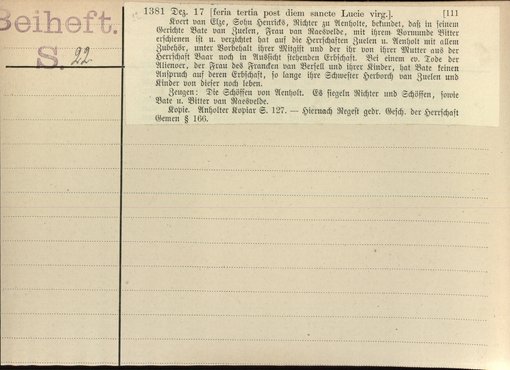 Beiheft.
S. 22
1381 Dez. 17 [feria tertia post diem sancte Lucie virg.]. [111]
Koert van Elze, Sohn Henricks, Richter zu Aenholte, bekundet, daß in seinem
Gerichte Bate van Zuelen, Frau van Raesvelde, mit ihrem Vormunde Bitter
erschienen ist u. verzichtet hat auf die Herrschaften Zuelen u. Aenholt mit allem
Zubehör, unter Vorbehalt ihrer Mitgift und der ihr von ihrer Mutter aus der
Herrschaft Baar noch in Aussicht stehenden Erbschaft. Bei einem ev. Tode der
Alienoer, der Frau des Francken van Versell und ihrer Kinder, hat Bate keinen
Anspruch auf deren Erbschaft, so lange ihre Schwester Herborch van Zuelen und
Kinder von dieser noch leben.
Zeugen: Die Schöffen von Aenholt. Es siegeln Richter und Schöffen, sowie
Bate u. Bitter van Raesvelde.
Kopie. Anholter Kopiar S. 127. — Hiernach Regest gedr. Gesch. der Herrschaft
Gemen § 166.